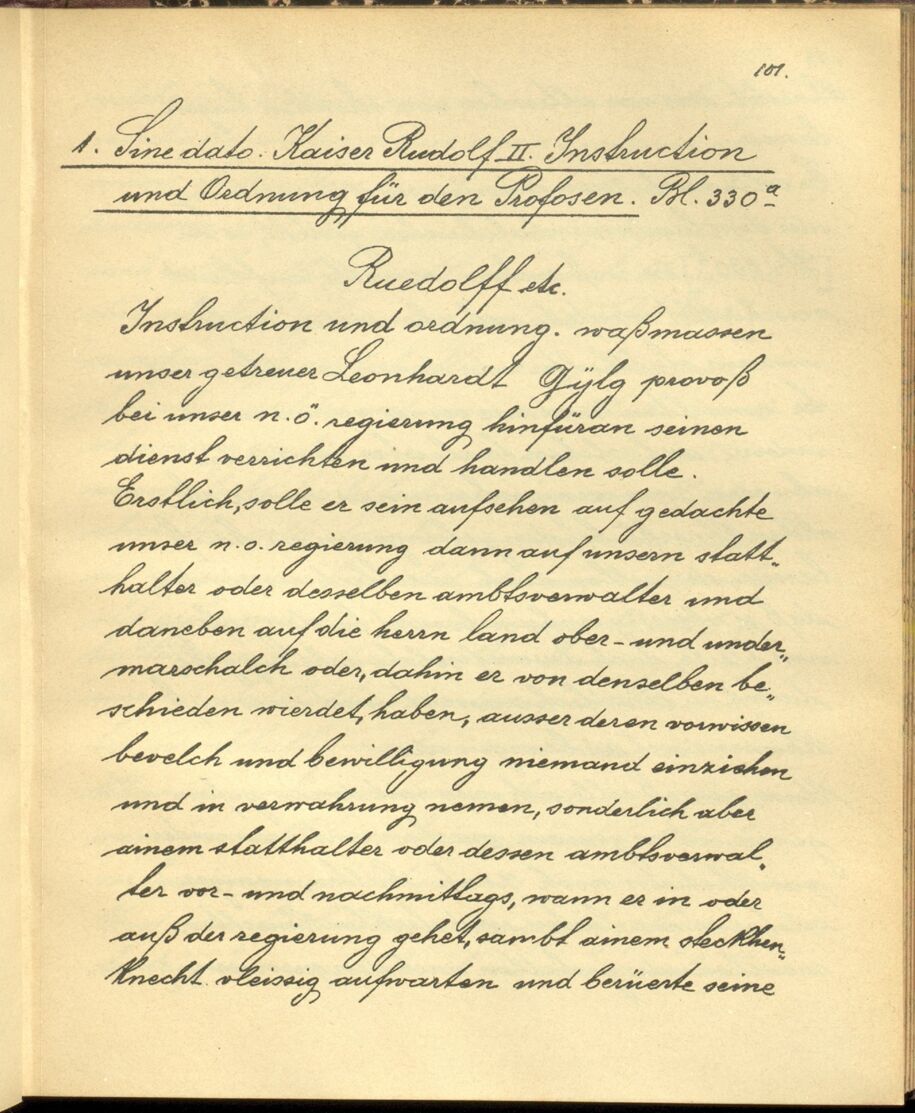 101.
1. Sine dato. Kaiser Rudolf II. Instruction
und Ordnung für den Profosen. Bl. 330a
Ruedolff etc.
Instruction und ordnung. waßmassen
unser getreuer Leonhardt Gÿlg provoß
bei unser n.ö. regierung hinfüran seinen
dienst verrichten und handlen solle.
Erstlich, solle er sein aufsehen auf gedachte
unser n.o. regierung dann auf unsern statt„
halter oder desselben ambtsverwalter und
daneben auf die herrn land ober- und under„
marschalch oder, dahin er von denselben be„
schieden wierdet, haben, ausser deren vorwissen
bevelch und bewilligung niemand einziehen
und in verwahrung nemen, sonderlich aber
ainem statthalter oder dessen ambtsverwal„
ter vor- und nachmittags, wann er in oder
auß der regierung gehet, sambt ainem steckhen„
knecht vleissig aufwarten und berüerte seine